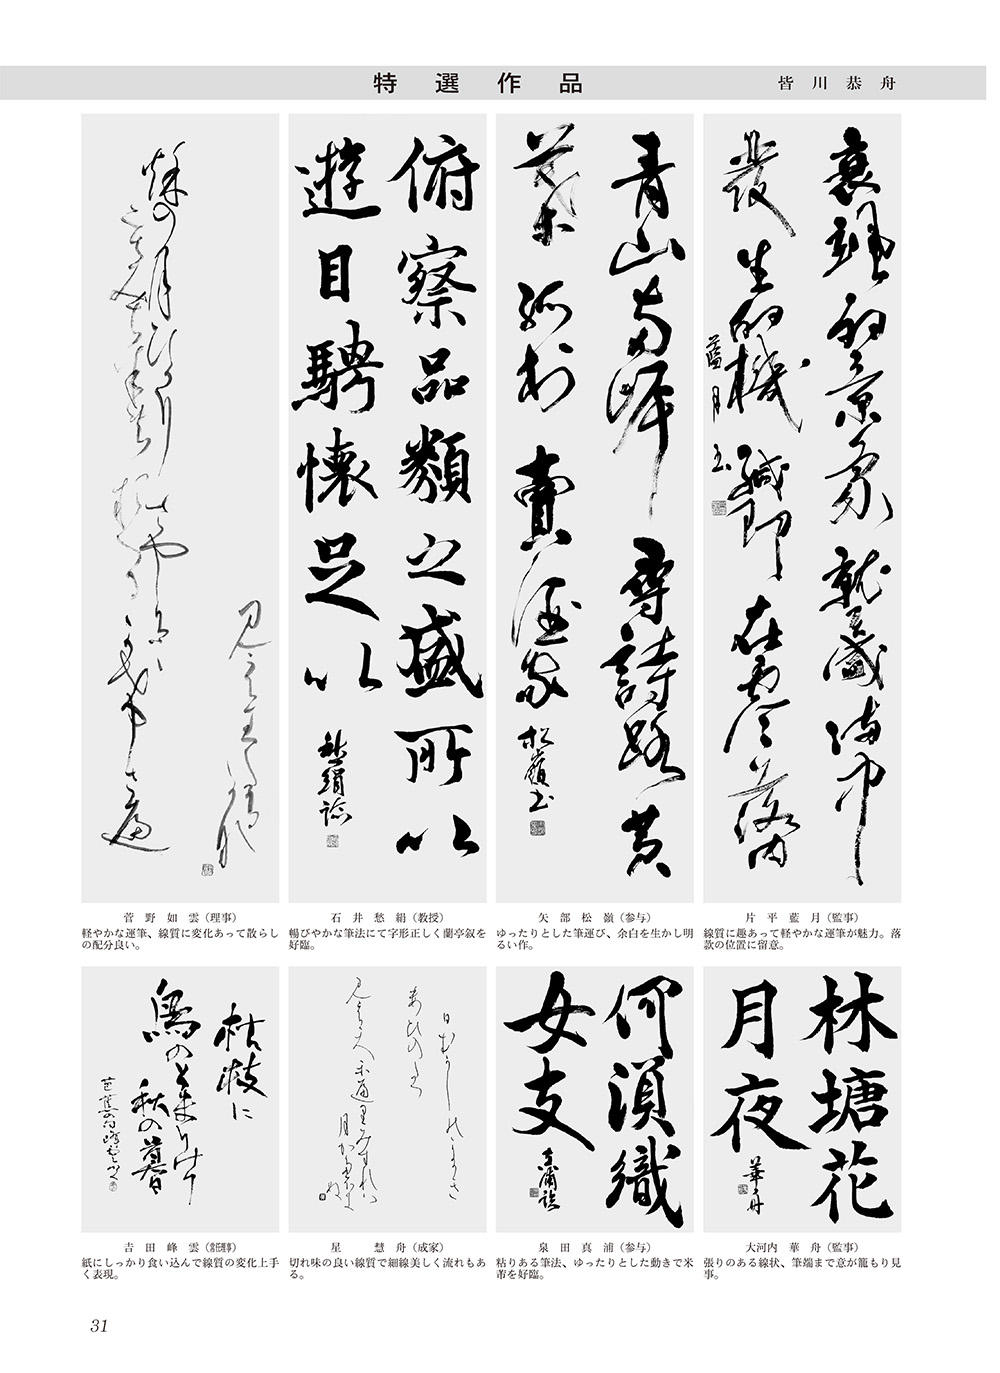 特選作品
皆川恭舟
衰颯的景象就在盛滿中
發生的機緘即在零落内
藍月書
片平藍月(監事)
線質に趣あって軽やかな運筆が魅力。落
款の位置に留意。
青山両岸尋詩路黄
葉孤村賣酒家
松嶺書
矢部松嶺(参与)
ゆったりとした筆運び、余白を生かし明
るい作。
俯察品類之盛所以
遊目騁懐足以
愁絹臨
石井愁絹(教授)
暢びやかな筆法にて字形正しく蘭亭叙を
好臨。
秋の月ひかり
菅野如雲(理事)
軽やかな運筆、線質に変化あって散らし
の配分良い。
林塘花
月夜
華舟
大河内華舟(監事)
張りのある線状、筆端まで意が籠もり見
事。
何須織
女支
真浦臨
泉田真浦(参与)
粘りある筆法、ゆったりとした動きで米
芾を好臨。
星慧舟(成家)
切れ味の良い線質で細線美しく流れもあ
る。
枯枝に
烏のとまりけり
秋の暮
芭蕉の句峰雲かく
吉田峰雲(常任理事)
紙にしっかり食い込んで線質の変化上手
く表現。
31